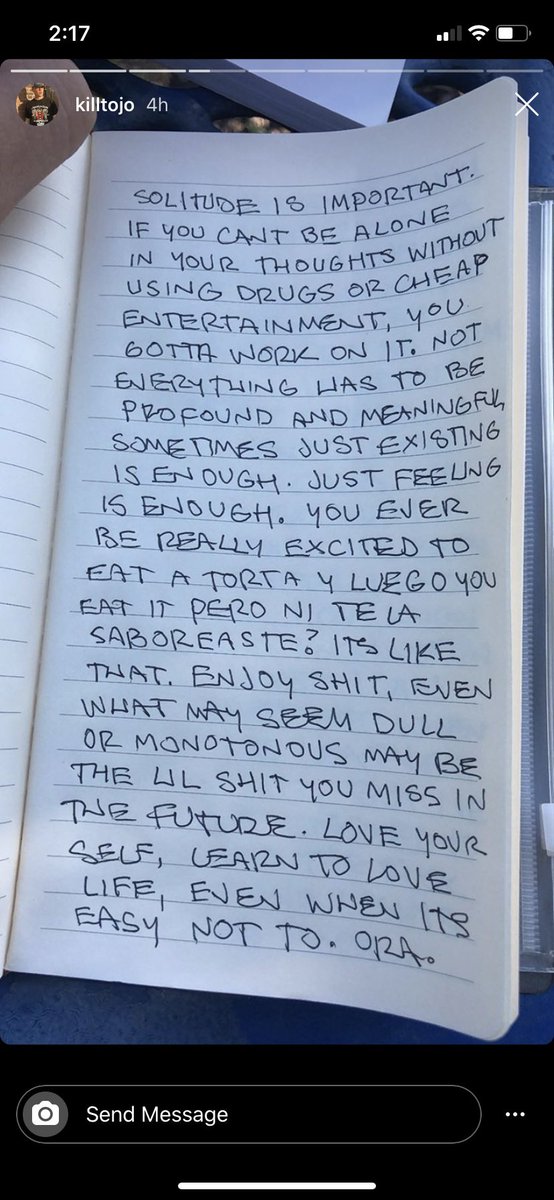 2:17
killtojo 4h
SOLITUDE IS IMPORTANT.
IF YOU CANT BE ALONE
IN YOUR THOUGHTS WITHOUT
USING DRUGS OR CHEAP
ENTERTAINMENT, YOU
GOTTA WORK ON IT. NOT
EVERYTHING HAS TO BE
PROFOUND AND MEANINGFUL,
SOMETIMES JUST EXISTING
IS ENOUGH. JUST FEELING
IS ENOUGH. YOU EVER
BE REALLY EXCITED TO
EAT A TORTA Y LUEGO YOU
EAT IT PERO NI TE LA
SABOREASTE? ITS LIKE
THAT. ENJOY SHIT, EVEN
WHAT MAY SEEM DULL
OR MONOTONOUS MAY BE
THE LIL SHIT YOU MISS IN
THE FUTURE. LOVE YOUR
SELF, LEARN TO LOVE
LIFE, EVEN WHEN ITS
EASY NOT TO. ORA.
Send Message